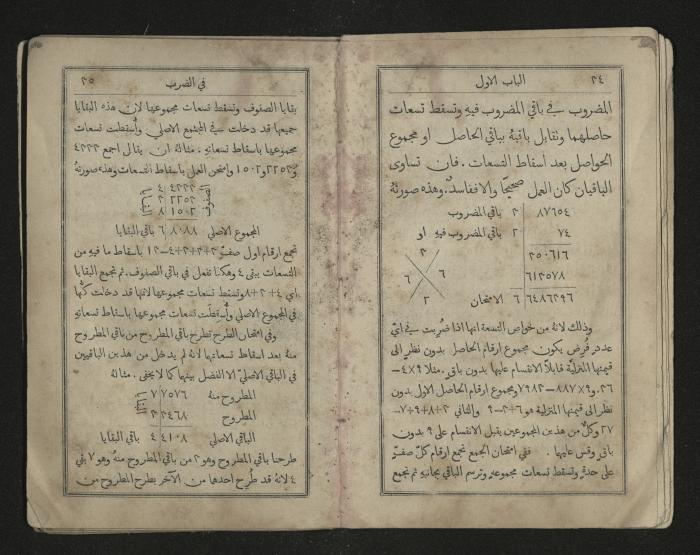 ٢٤ الباب الاول
المضروب في باقي المضروب فيهِ وتسقط تسعات
حاصلهما وتقابل باقيهُ بباقي الحاصل او مجموع
الحواصل بعد اسقاط التسعات. فان تساوى
الباقيان كان العمل صحيحًا والا ففاسدٌ. وهذه صورتهُ
٨٧٦٥٤ ٣ باقي المضروب
٧٤ ٢ باقي المضروب فيهِ او
٣٥٠٦١٦
٦١٣٥٧٨
٦٤٨٦٣٩٦ ٦ الامتحان
٣
٦ ٦
٢
وذلك لانهُ من خواص التسعة انها اذا ضُرِبت في ايّ
عددٍ فُرِض يكون مجموع ارقام الحاصل بدون نظرٍ الى
قيمتها المنزليَّة قابلًا الانقسام عليها بدون باقٍ. مثلًا ٩×٤=
٣٦. و٩×٨٨٧=٧٩٨٣ ومجموع ارقام الحاصل الاول بدون
نظر الى قيمتها المنزلية هو ٦+٣=٩ والثاني ٣+٨+٩+٧=
٢٧ وكلٌّ من هذين المجموعين يقبل الانقسام على ٩ بدون
باقٍ وقس عليهما. ففي امتحان الجمع تجمع ارقام كلّ صفٍّ
على حدةٍ وتسقط تسعات مجموعهِ وترسم الباقي بجانبهِ ثم تجمع
في الضرب ٢٥
بقايا الصفوف وتسقط تسعات مجموعها لان هذه البقايا
جميعها قد دخلت في المجتمع الاصلي وأُسقِطت تسعات
مجموعها باسقاط تسعاتهِ. مثالهُ ان يقال اجمع ٤٣٣٣
و٢٢٥٣ و١٥٠٢ وامتحن العمل باسقاط التسعات وهذه صورتهُ
الصفوف ٤٣٣٣ ٤ البقايا
٢٢٥٣ ٣
١٥٠٢ ٨
المجموع الاصلي ٨٠٨٨ ٦ باقي البقايا
تجمع ارقام اول صفّ ٣+٣+٣+٤=١٣ باسقاط ما فيهِ من
التسعات يبقى ٤ وهكذا تفعل في باقي الصفوف. ثم تجمع البقايا
اي ٤+٣+٨ وتسقط تسعات مجموعها لانها قد دخلت كلّها
في المجموع الاصلي وأُسقِطت تسعات مجموعها باسقاط تسعاتهِ
وفي امتحان الطرح تطرح باقي المطروح من باقي المطروح
منهُ بعد اسقاط تسعاتها لانهُ لم يدخل من هذين الباقيين
في الباقي الاصليّ الا الفضل بينها كما لا يخفى. مثالهُ
المطروح منهُ ٧٥٧٦ ٧ البقايا
المطروح ٣٤٦٨ ٣
الباقي الاصلي ٤١٠٨ ٤ باقي البقايا
طرحنا باقي المطروح وهو ٣ من باقي المطروح منهُ وهو ٧ بقي
٤ لانهُ قد طُرِح احدها من الآخر بطرح المطروح من